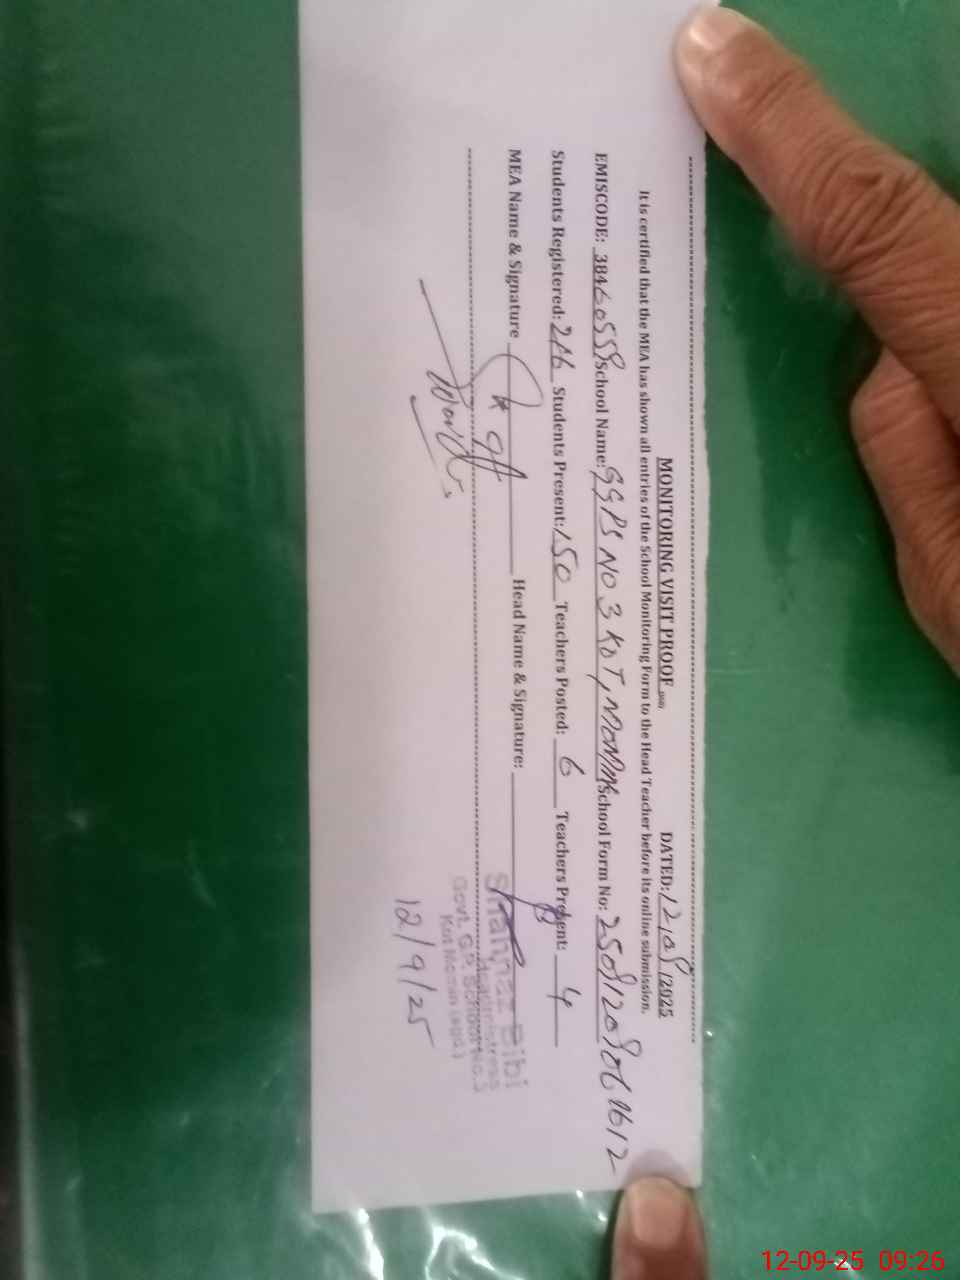 MONITORING VISIT PROOF DATED: 12/09/2025
It is certified that the MEA has shown all entries of the School Monitoring Form to the Head Teacher before its online submission.
EMISCODE: 38460559 School Name: GGPS NO 3 KOT, MOMIN School Form No:
Students Registered: 216 Students Present: 150 Teachers Posted: 6 Teachers Present: 4
MEA Name & Signature Head Name & Signature:
Shahnaz Bibi
Headmistress
Govt. G.P. School No.3
Kot Momin (sgd)
12/9/25
12-09-25 09:26